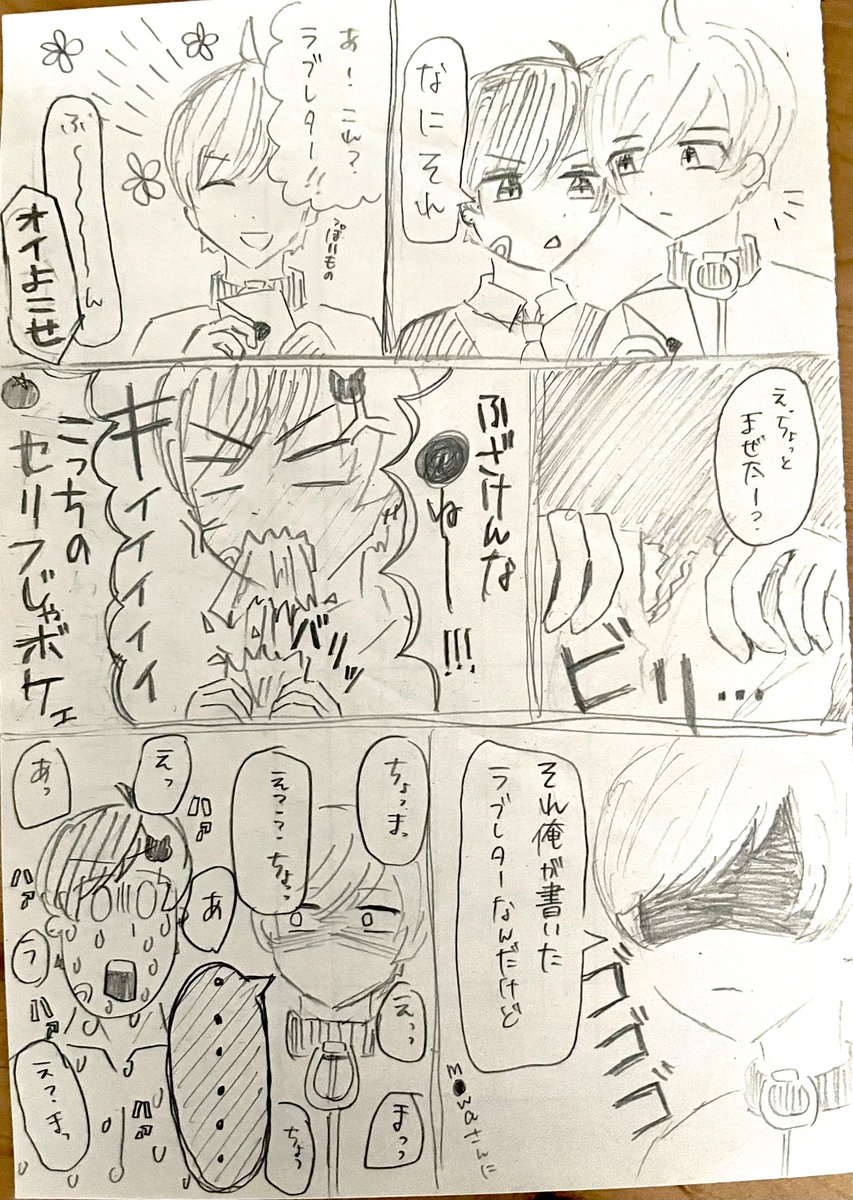 なにそれ
あ!これ?
ラブレター!!
っぽいもの
ぶ〜〜〜ん
オイよこせ
え、ちょっと
まぜ太ー?
ビリ……
ふざけんな
ねー!!!
キィイイイイイ
バリッ
こっちの
セリフじゃボケェ
それ俺が書いた
ラブレターなんだけど
ゴゴゴゴ
mowaさんに
ちょっまっ
えっ?ちょっ
えっっ
まっっ
ちょっ
・・・・・・
えっ
あっ
ハァ
あ
ハァ
う
ハァ
えっ?まっ
ハァ